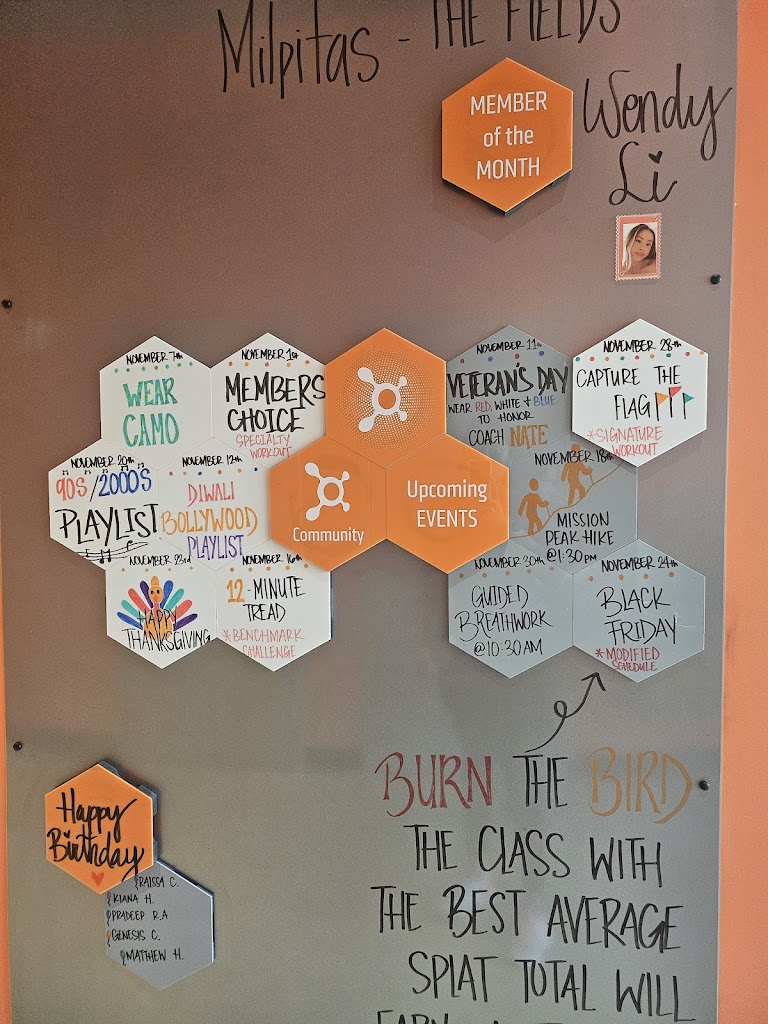 Milpitas - THE FIELDS
MEMBER
of the
MONTH
Wendy
Li
NOVEMBER 7th
WEAR
CAMO
NOVEMBER 1st
MEMBERS
CHOICE
SPECIALTY
WORKOUT
NOVEMBER 11th
VETERAN'S DAY
WEAR RED, WHITE + BLUE
TO HONOR
COACH NATE
NOVEMBER 28th
CAPTURE THE
FLAG
*SIGNATURE
WORKOUT
NOVEMBER 20th
90S/2000'S
PLAYLIST
NOVEMBER 12th
DIWALI
BOLLYWOOD
PLAYLIST
Community
Upcoming
EVENTS
NOVEMBER 18th
MISSION
PEAK HIKE
@1:30PM
NOVEMBER 23rd
HAPPY
THANKSGIVING
NOVEMBER 16th
12-MINUTE
TREAD
*BENCHMARK
CHALLENGE
NOVEMBER 30th
GUIDED
BREATHWORK
@10:30AM
NOVEMBER 24th
BLACK
FRIDAY
*MODIFIED
SCHEDULE
BURN THE BIRD
THE CLASS WITH
THE BEST AVERAGE
SPLAT TOTAL WILL
Happy
Birthday
RAISSA C.
KIANA H.
PRADEEP R.A
GENESIS C.
MATTHEW H.